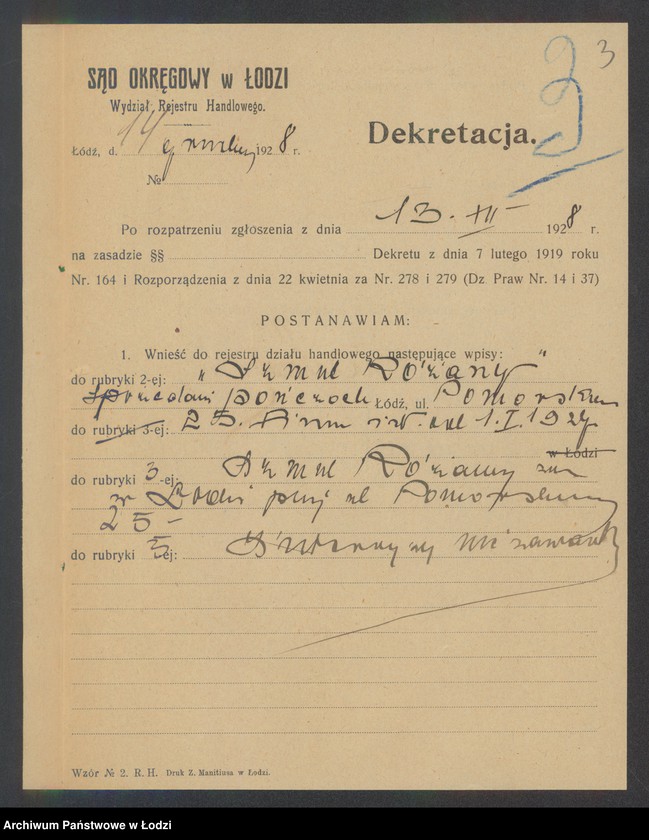 3
SĄD OKRĘGOWY w ŁODZI
Wydział Rejestru Handlowego.
Dekretacja.
Łódź, d. 14 grudnia 1928 r.
№
Po rozpatrzeniu zgłoszenia z dnia 13. XII 1928 r.
na zasadzie §§ Dekretu z dnia 7 lutego 1919 roku
Nr. 164 i Rozporządzenia z dnia 22 kwietnia za Nr. 278 i 279 (Dz Praw Nr. 14 i 37)
POSTANAWIAM:
1. Wnieść do rejestru działu handlowego następujące wpisy:
do rubryki 2-ej: „Szmul Różany"
sprzedaż pończoch Łódź, ul. Pomorska
do rubryki 3-ej: 25. Firma istn. od 1.I.1927
w Łodzi
do rubryki 3-ej: Szmul Różany zam
w Łodzi przy ul Pomorskiej
25
do rubryki 5-ej: nie zawarł
Wzór № 2. R. H. Druk Z. Manitiusa w Łodzi.
Archiwum Państwowe w Łodzi